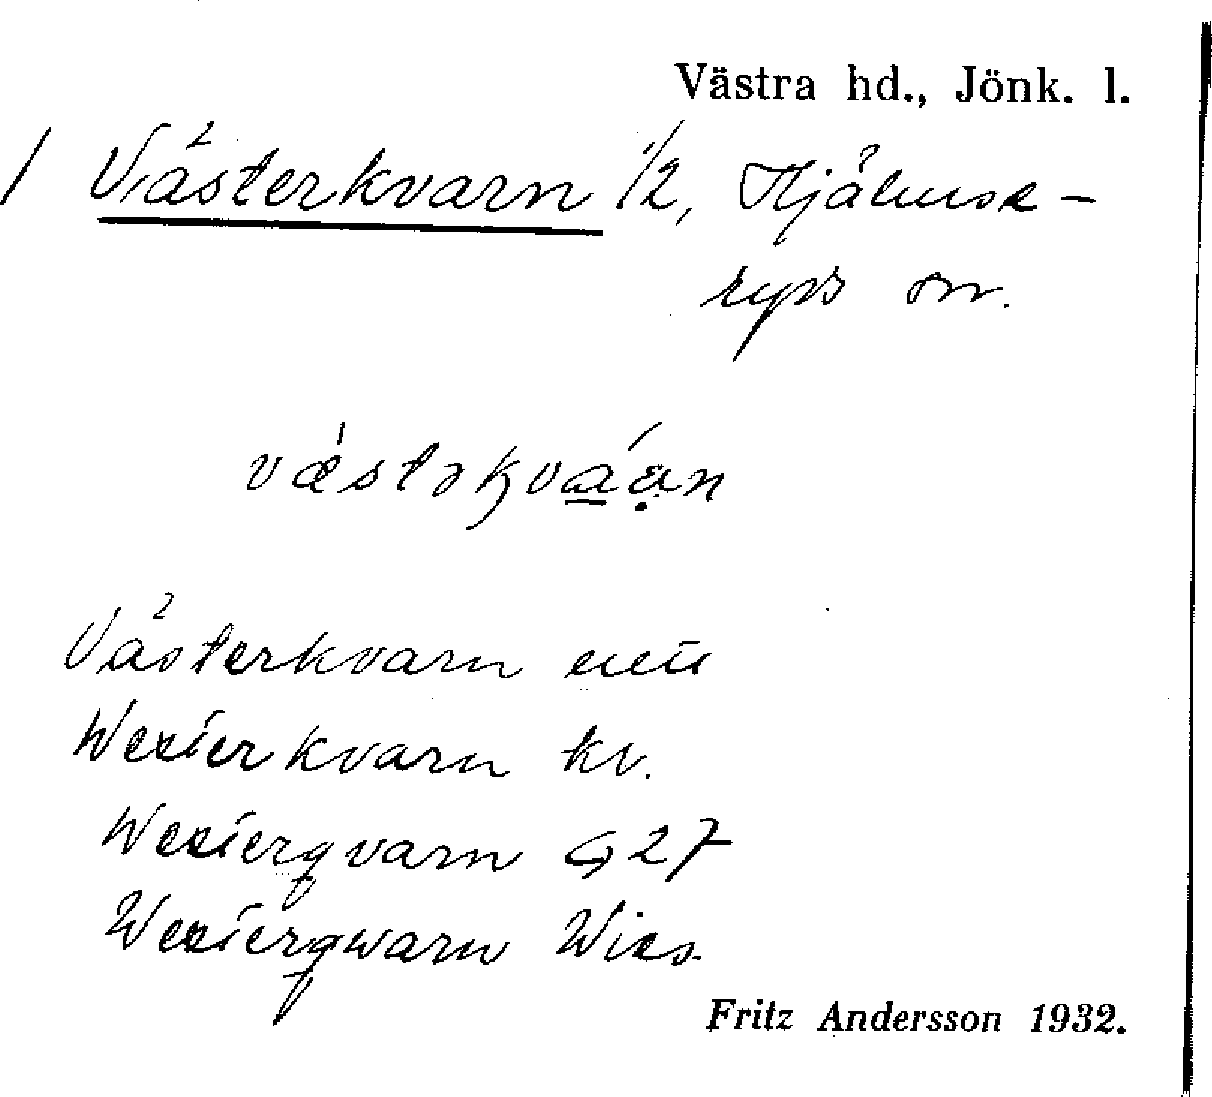 Västra hd., Jönk. l.
/ Västerkvarn 1/2, Hjälmse-
ryds sn.
væstəkvaan
Västerkvarn
Westerkvarn kv.
Westerqvarn G 27
Westerqwarn Wies.
Fritz Andersson 1932.